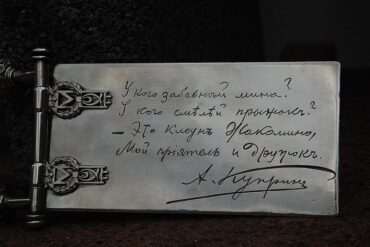 У кого забавнѣй мина?
У кого смѣлѣй прыжокъ?
– Это Клоунъ Жакомино,
Мой пріятель и дружокъ.
А. Купринъ